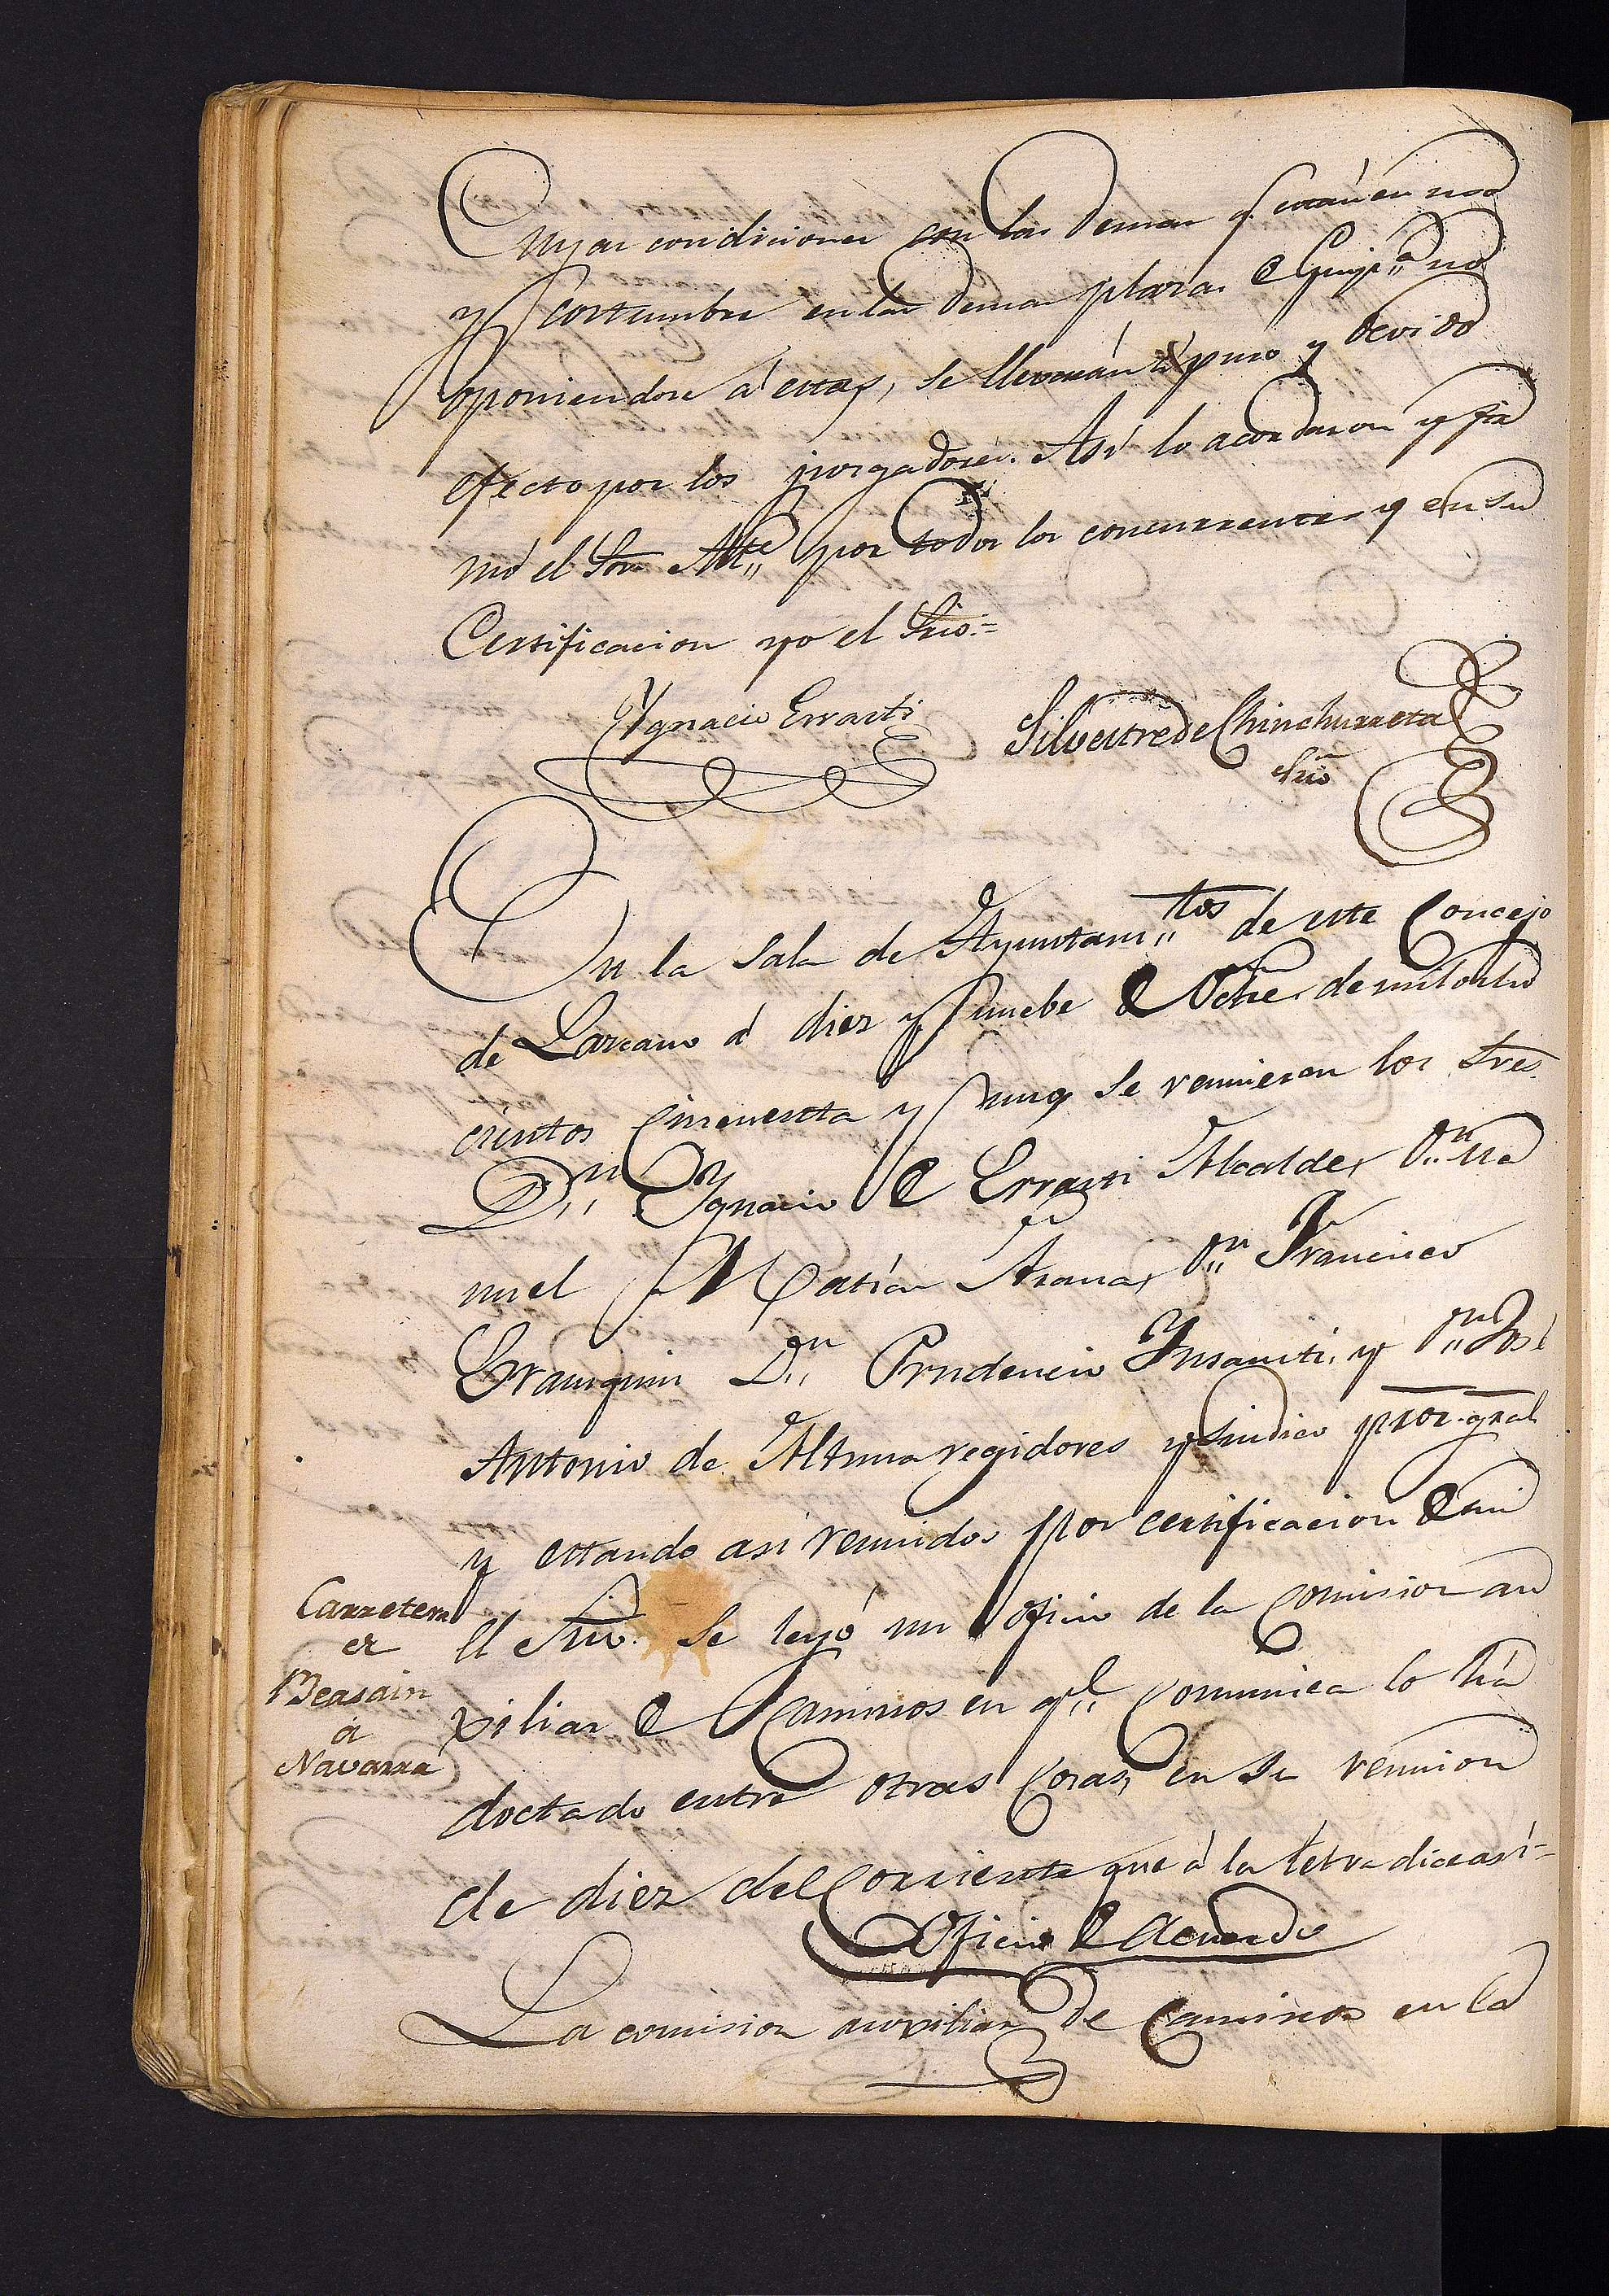 Cuyas condiciones con las demas q.e están en uso
y costumbre en las demas plazas de Guip.a no
oponiendose á estas, se llevarán á puro y devido
efecto por los juzgadores. Así lo acordaron y fir
mó el Sor. Alte. por todos los concurrentes y en su
Certificacion yo el Srio.=
Ygnacio Errasti
Silvestre de Chinchurreta
Srio
En la Sala de Ayuntam.tos de este Concejo
de Lazcano á diez y nuebe de Octre. de mil ocho
cientos cincuenta y uno, se reunieron los Sres.
D.n Ygnacio de Errasti Alcalde, D.n Ma
nuel Matías Arana, D.n Francisco
Erauzquin D.n Prudencio Insausti, y D.n José
Antonio de Altuna regidores y sindico pror. gral
y estando asi reunidos por certificacion de mi
el Srio. Se leyó un oficio de la Comision au
xiliar de Caminos en q.l comunica lo ha
doctado entre otras cosas, en su reunion
de diez del Corriente que á la letra dice así=
Carretera
de
Beasain
á
Navarra
Oficio de Acuerdo
La comision auxiliar de Caminos en la